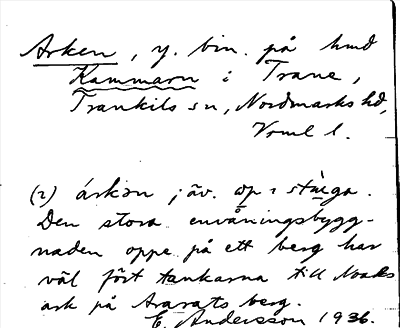 Arken, y. bin. på hmd
Kammarn i Trane,
Trankils sn, Nordmarks hd,
Vrml l.
(2) árkən; äv. op i stæ̀ga.
Den stora envåningsbygg-
naden oppe på ett berg har
väl fört tankarna till Noaks
ark på Ararats berg.
E. Andersson 1936.